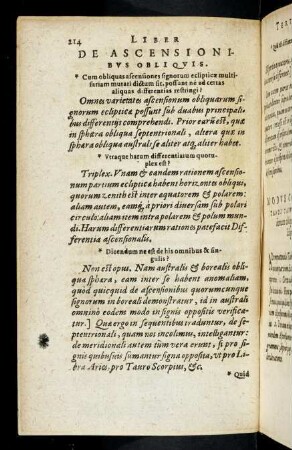 214 LIBER
DE ASCENSIONI-
BVS OBLIQVIS.
* Cum obliquas ascensiones signorum eclipticæ multi-
fariam mutari dictum sit, possunt ne ad certas
aliquas differentias restringi?
Omnes varietates ascensionum obliquarum si-
gnorum eclipticæ possunt sub duabus principali-
bus differentijs comprehendi. Prior earũ est, quæ
in sphæra obliqua septentrionali, altera quæ in
sphæra obliqua australi se aliter atq; aliter habet.
* Vtraque harum differentiarum quotu-
plex est?
Triplex. Vnam & eandem rationem ascensio-
num partium eclipticæ habent horizontes obliqui,
quorum zenith inter æquatorem & polarem:
aliam autem, eamq́; à priori diversam sub polari
circulo: aliam item intra polarem & polum mun-
di. Harum differentiarum rationes patefacit Dif-
ferentia ascensionalis.
* Dicendum ne est de his omnibus & sin-
gulis?
Non est opus. Nam australis & borealis obli-
qua sphæra, eam inter se habent anomaliam,
quod quicquid de ascensionibus quorumcunque
signorum in boreali demonstratur, id in australi
omnino eodem modo in signis oppositis verifica-
tur.] Quæ ergo in sequentibus traduntur, de se-
ptentrionali, quam nos incolimus, intelligantur:
de meridionali autem tũm vera erunt, si pro si-
gnis quibusuis sumantur signa opposita, vt pro Li-
bra Aries, pro Tauro Scorpius, &c.
* Quid